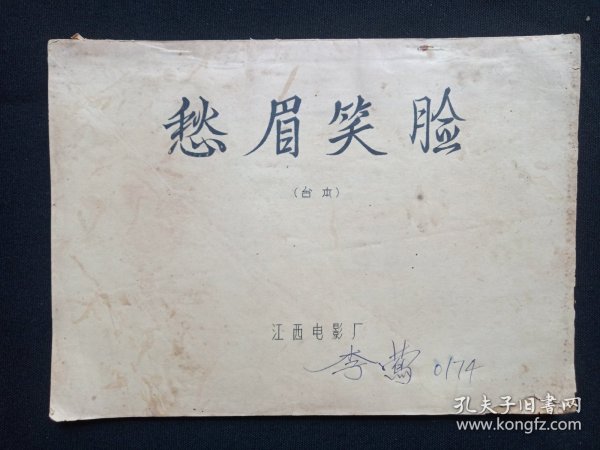 愁眉笑脸
（台本）
江西电影厂
李莺 0174
孔夫子旧书网
www.kongfz.com